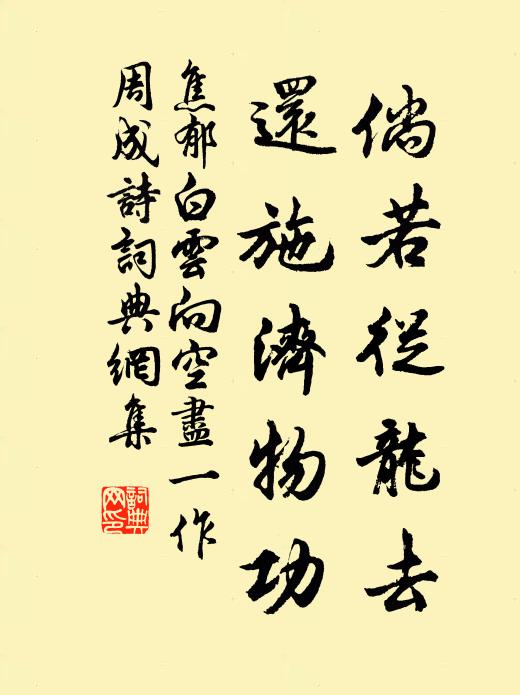 倘若從龍去
還施濟物功
焦郁白雲向空盡一作
周成詩詞典網集
詞典
网印